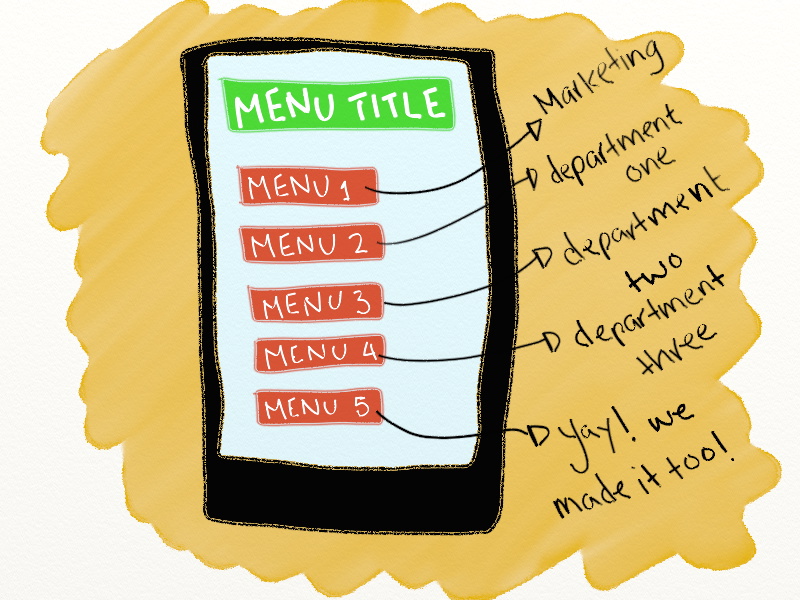 MENU TITLE
MENU 1
MENU 2
MENU 3
MENU 4
MENU 5
Marketing
department
one
department
two
department
three
Yay! we
made it too!